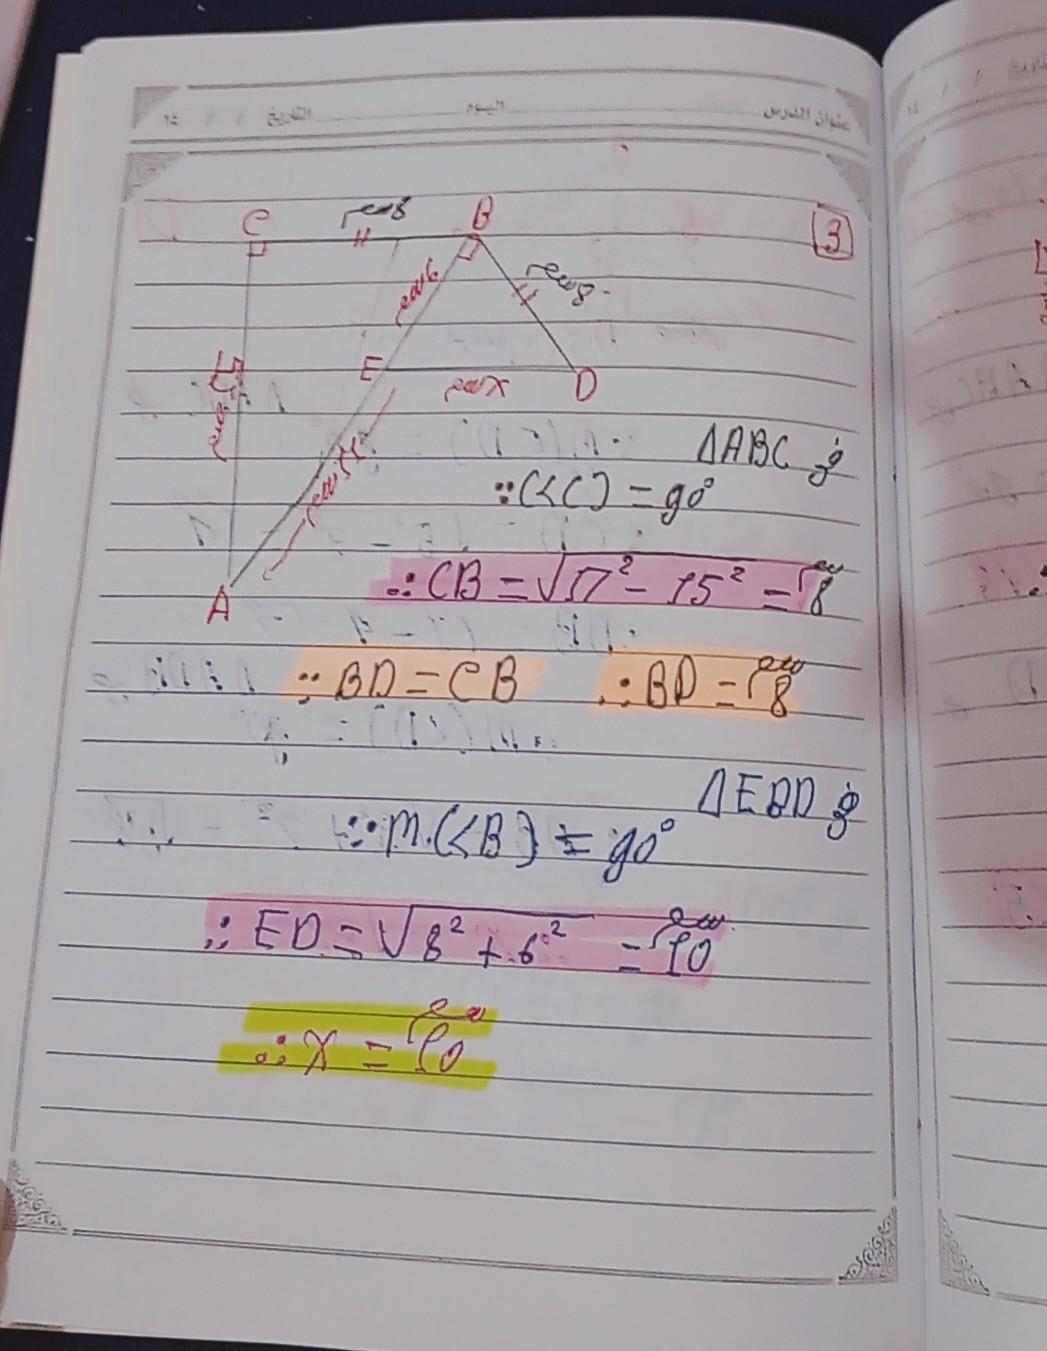 عنوان الدرس اليوم التاريخ / / ١٤
3
C 8سم B
6سم 8سم
15سم E Xسم D
A
في ΔABC
∵(<C) = 90°
∴CB = √17² - 15² = 8سم
∵BD = CB ∴BD = 8سم
في ΔEBD
∵m(<B) = 90°
∴ED = √8² + 6² = 10سم
∴X = 10سم